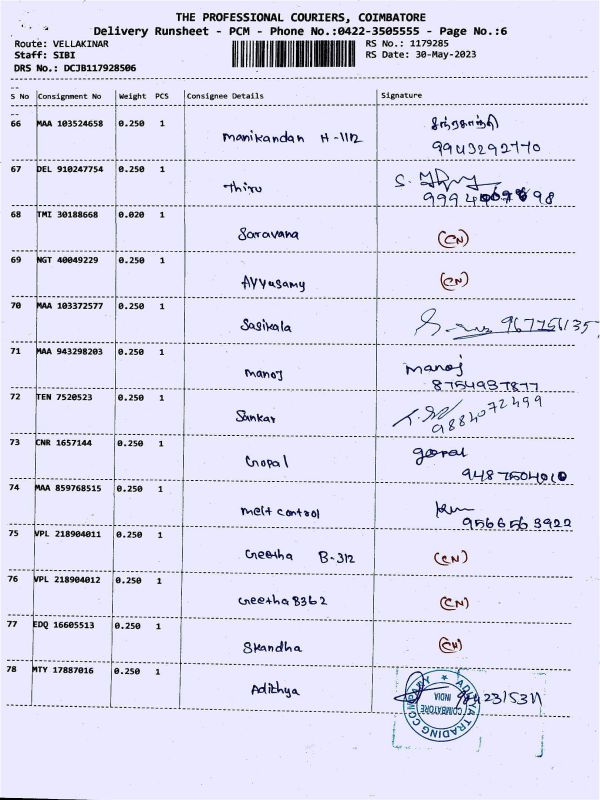 THE PROFESSIONAL COURIERS, COIMBATORE
Delivery Runsheet - PCM - Phone No.:0422-3505555 - Page No.:6
Route: VELLAKINAR
Staff: SIBI
DRS No.: DCJB117928506
RS No.: 1179285
RS Date: 30-May-2023
S No Consignment No Weight PCS Consignee Details Signature
66 MAA 103524658 0.250 1 Manikandan H-1112 சந்திரகாந்தி
9943292770
67 DEL 910247754 0.250 1 Thiru
68 TMI 30188668 0.020 1 Saravana (CN)
69 NGT 40049229 0.250 1 Ayyasamy (CN)
70 MAA 103372577 0.250 1 Sasikala
71 MAA 943298203 0.250 1 Manoj Manoj
8754937877
72 TEN 7520523 0.250 1 Sankar
9884072499
73 CNR 1657144 0.250 1 Gopal gopal
9487504010
74 MAA 859768515 0.250 1 melt control
9566563922
75 VPL 218904011 0.250 1 Geetha B-312 (CN)
76 VPL 218904012 0.250 1 Geetha B362 (CN)
77 EDQ 16605513 0.250 1 Skandha (CN)
78 MTY 17887016 0.250 1 Adithya
ADITHYA TRADING COMPANY
COIMBATORE
INDIA